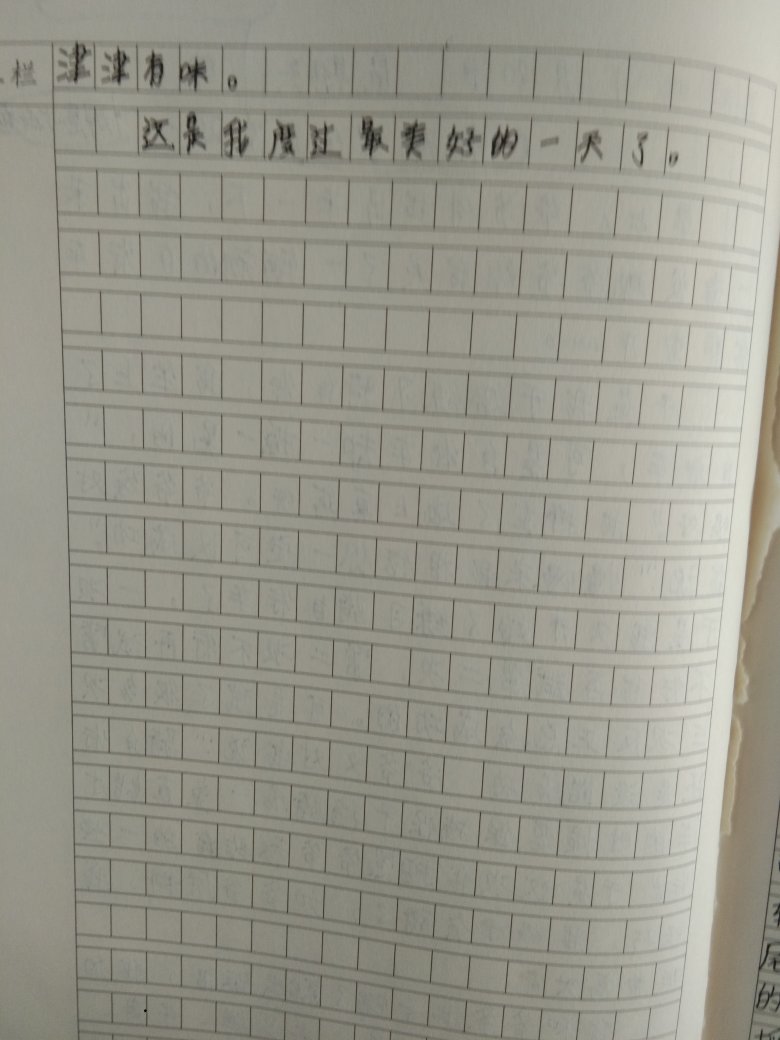 栏
津津有味。
这是我度过最美好的一天了。
的